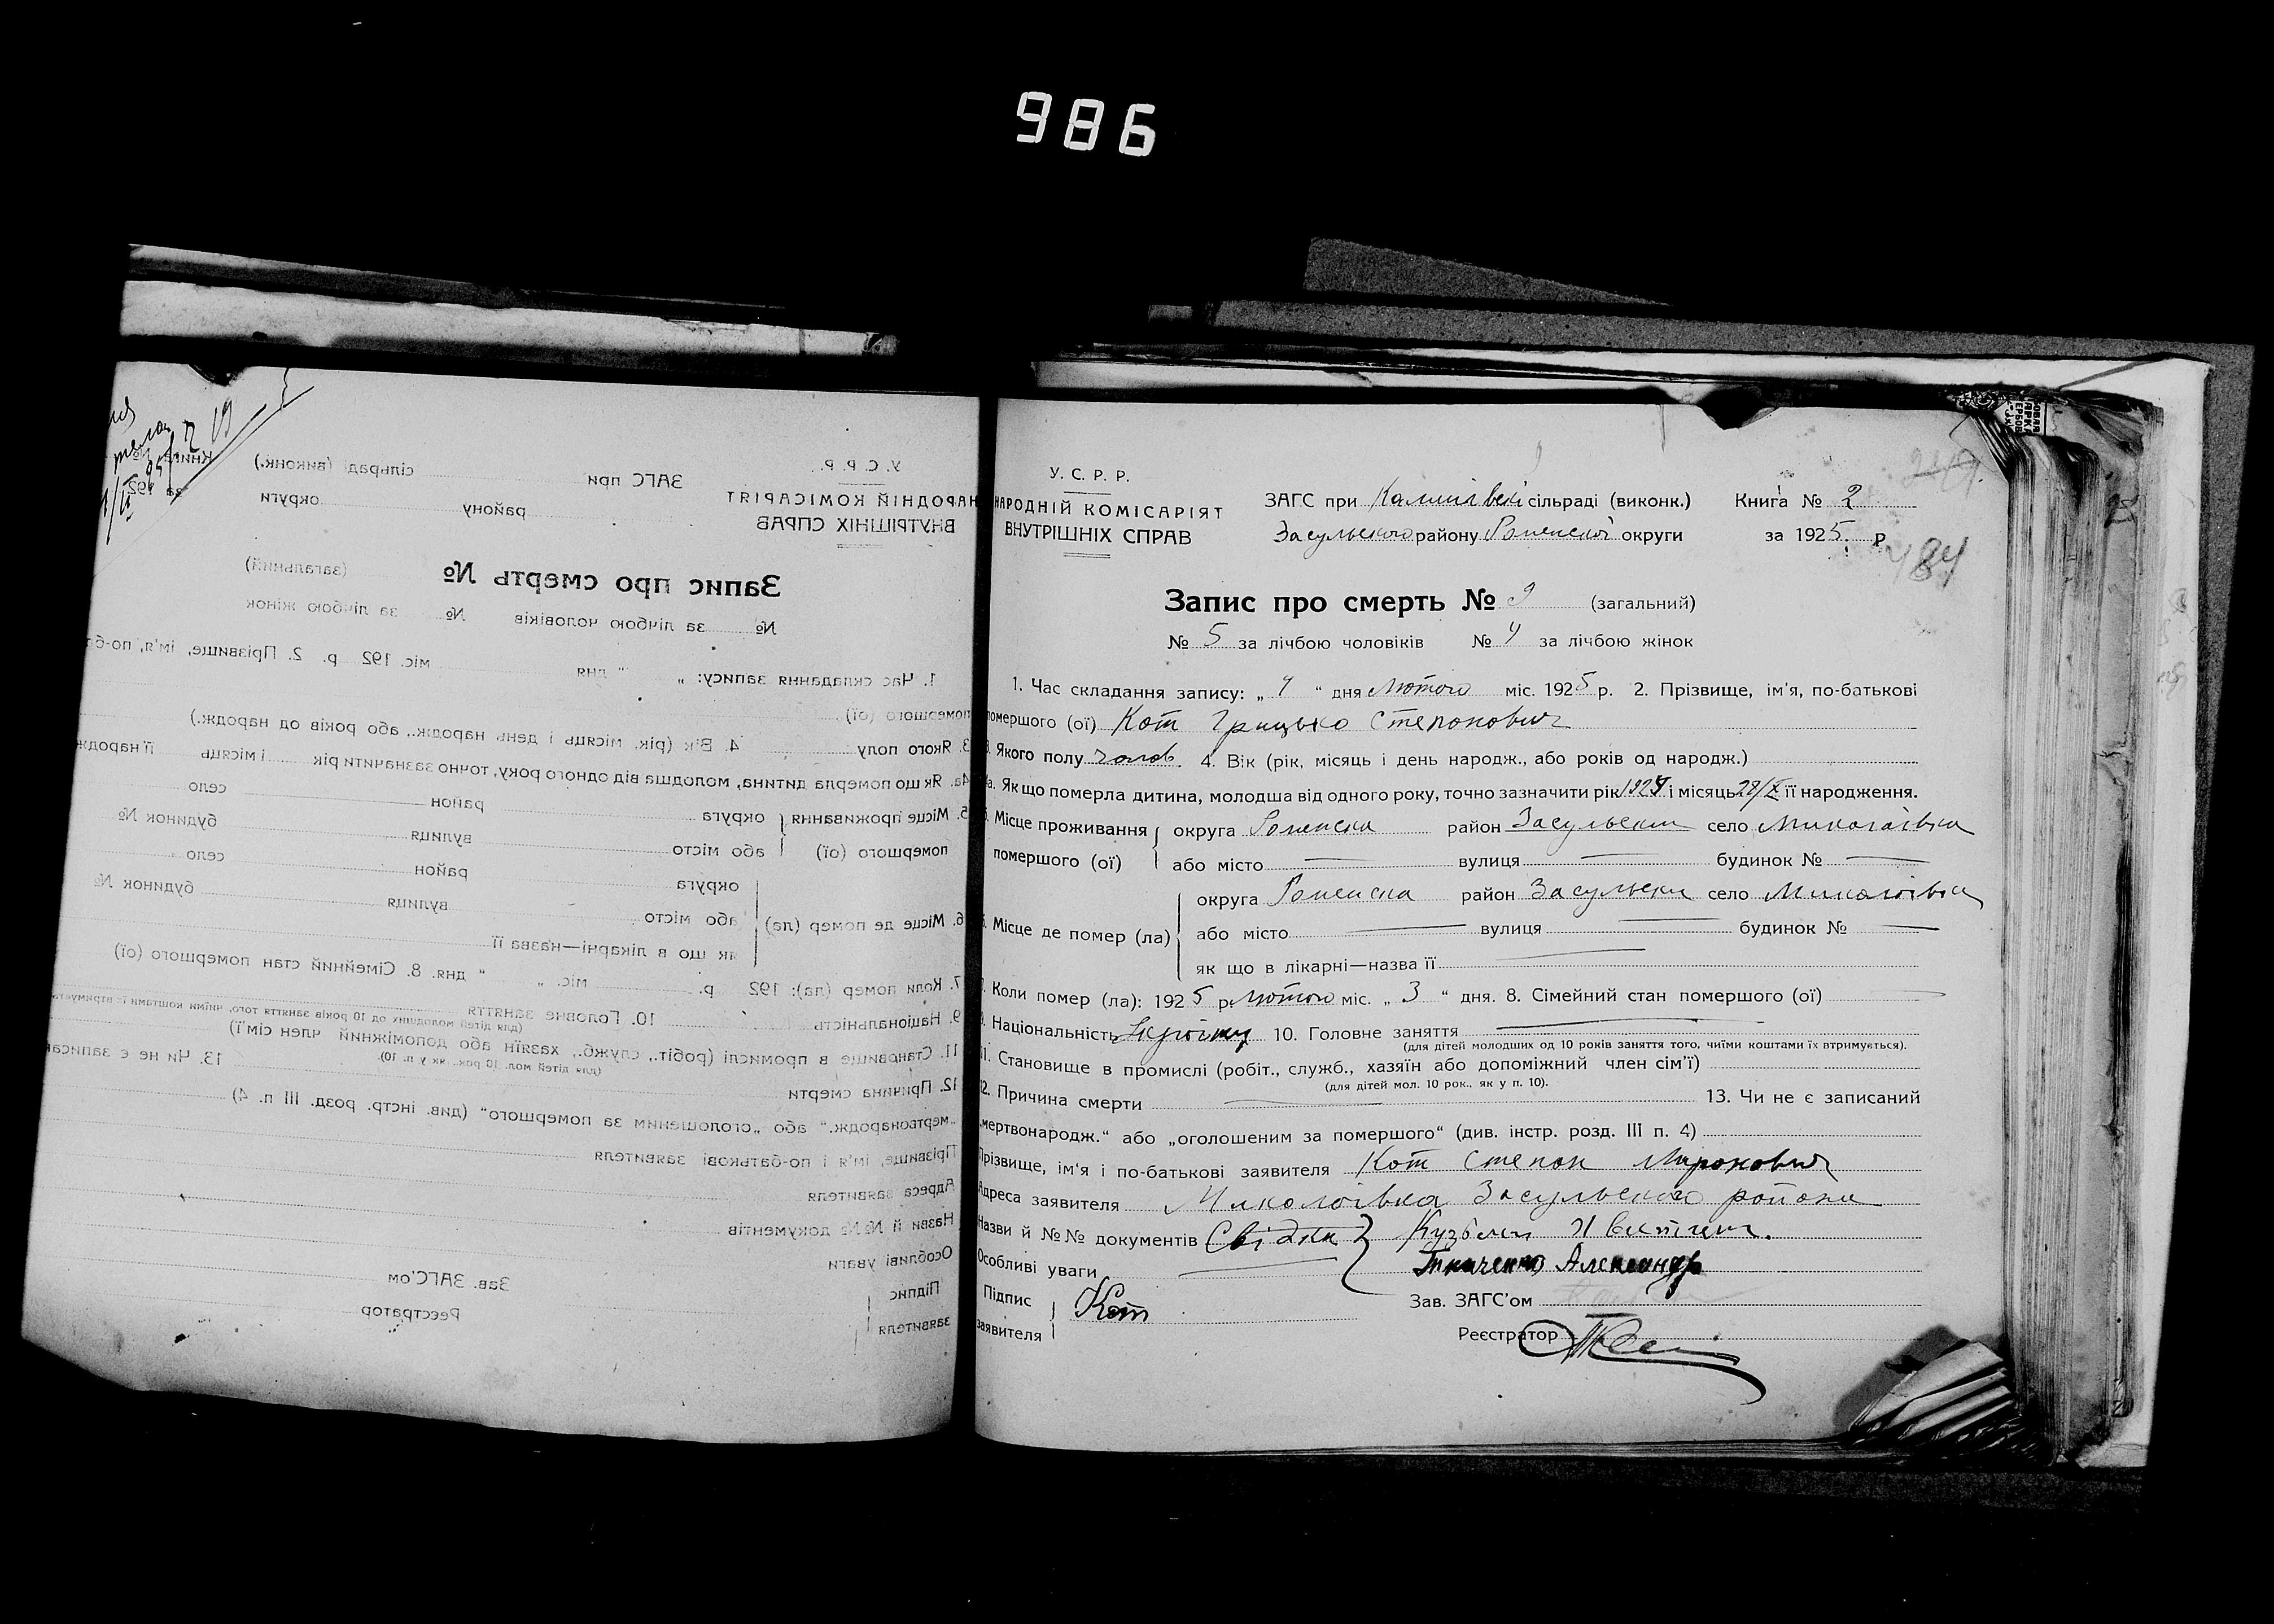 986
У. С. Р. Р.
НАРОДНІЙ КОМІСАРІЯТ
ВНУТРІШНІХ СПРАВ
ЗАГС при сільраді (виконк.)
Засульського району Роменської округи
Книга № 2
за 1925 р
484
Запис про смерть № 9 (загальний)
№ 5 за лічбою чоловіків № 4 за лічбою жінок
1. Час складання запису: „ 4 “ дня Лютого міс. 1925 р. 2. Прізвище, ім'я, по-батькові
помершого (ої) Кот Грицько Степанович
3. Якого полу чолов. 4. Вік (рік, місяць і день народж., або років од народж.)
4а. Як що померла дитина, молодша від одного року, точно зазначити рік 1924 і місяць 28/X її народження.
5. Місце проживання помершого (ої) округа Роменска район Засульский село Миколаівка
або місто — вулиця — будинок № —
6. Місце де помер (ла) округа Роменска район Засульски село Миколаівка
або місто — вулиця — будинок № —
як що в лікарні—назва її —
7. Коли помер (ла): 1925 р. лютого міс. „ 3 “ дня. 8. Сімейний стан помершого (ої) —
9. Національність 10. Головне заняття —
(для дітей молодших од 10 років заняття того, чиїми коштами їх втримується).
11. Становище в промислі (робіт., служб., хазяїн або допоміжний член сім'ї)
(для дітей мол. 10 рок., як у п. 10).
12. Причина смерти — 13. Чи не є записаний
„мертвонародж.“ або „оголошеним за помершого“ (див. інстр. розд. III п. 4)
Прізвище, ім'я і по-батькові заявителя Кот Степан Миронович
Адреса заявителя Миколаівка Засульского району
Назви й №№ документів Свідки Кузьмен
Особливі уваги — Ткаченко Александр
Підпис заявителя Кот
Зав. ЗАГС'ом
Реєстратор